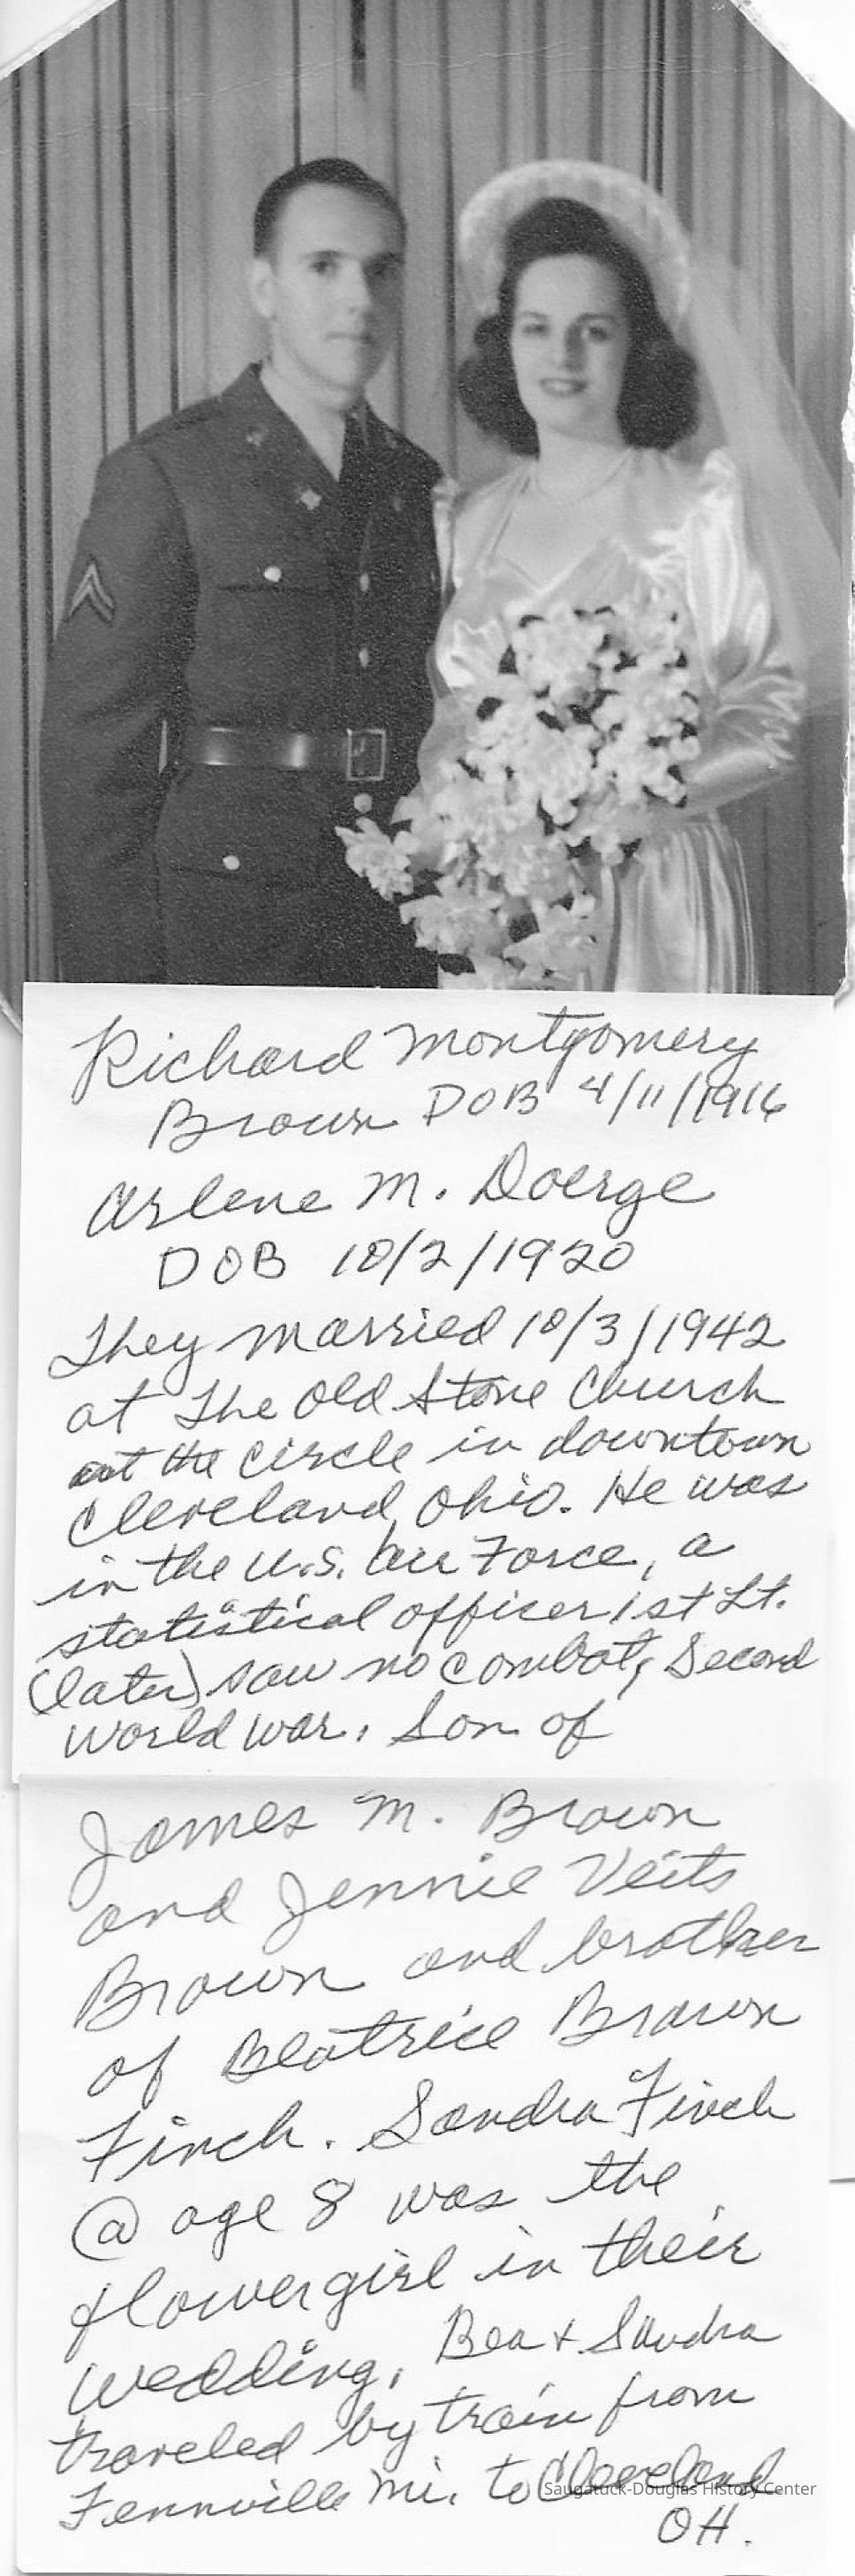 Richard Montgomery
Brown DOB 4/11/1916
Arlene M. Doerge
DOB 10/2/1920
They married 10/3/1942
at The Old Stone Church
at the circle in downtown
Cleveland, Ohio. He was
in the U.S. Air Force, a
statistical officer 1st Lt.
(later) saw no combat, Second
World War. Son of
James M. Brown
and Jennie Veits
Brown and brother
of Beatrice Brown
Finch. Sandra Finch
@ age 8 was the
flower girl in their
wedding. Bea + Sandra
traveled by train from
Fennville Mi. to Cleveland
OH.
Saugatuck-Douglas History Center